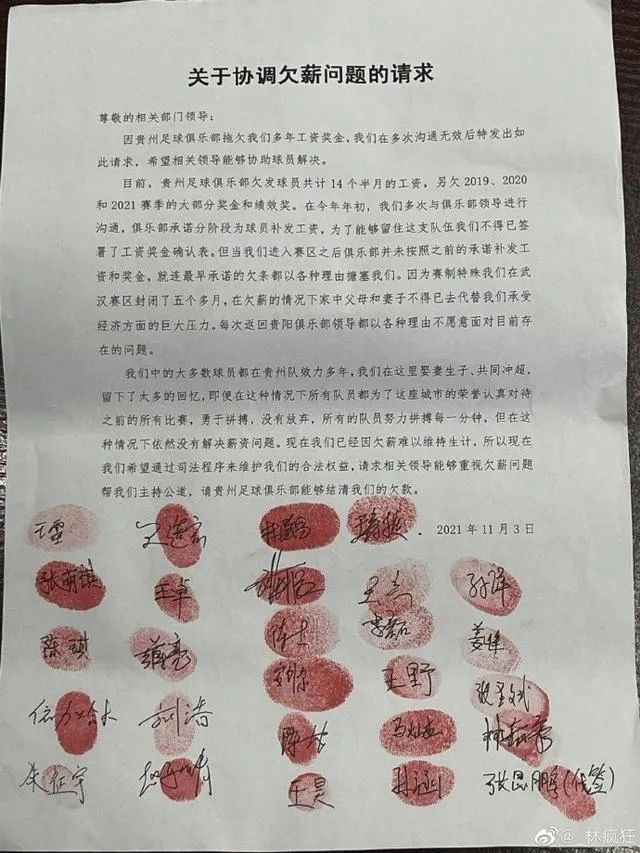 关于协调欠薪问题的请求
尊敬的相关部门领导：
因贵州足球俱乐部拖欠我们多年工资奖金，我们在多次沟通无效后特发出如
此请求，希望相关领导能够协助球员解决。
目前，贵州足球俱乐部欠发球员共计 14 个半月的工资，另欠 2019、2020
和 2021 赛季的大部分奖金和绩效奖。在今年年初，我们多次与俱乐部领导进行
沟通，俱乐部承诺分阶段为球员补发工资，为了能够留住这支队伍我们不得已签
署了工资奖金确认表。但当我们进入赛区之后俱乐部并未按照之前的承诺补发工
资和奖金，就连最早承诺的欠条都以各种理由搪塞我们。因为赛制特殊我们在武
汉赛区封闭了五个多月，在欠薪的情况下家中父母和妻子不得已去代替我们承受
经济方面的巨大压力。每次返回贵阳俱乐部领导都以各种理由不愿意面对目前存
在的问题。
我们中的大多数球员都在贵州队效力多年，我们在这里娶妻生子、共同冲超，
留下了太多的回忆，即便在这种情况下所有队员都为了这座城市的荣誉认真对待
之前的所有比赛，勇于拼搏，没有放弃，所有的队员努力拼搏每一分钟，但在这
种情况下依然没有解决薪资问题。现在我们已经因欠薪难以维持生计，所以现在
我们希望通过司法程序来维护我们的合法权益，请求相关领导能够重视欠薪问题
帮我们主持公道，请贵州足球俱乐部能够结清我们的欠款。
2021 年 11 月 3 日
张萌琪 王卓 孙译
陈琪
刘涛 王野
朱征宇 王昊 张昆鹏(代签)
@_林疯狂